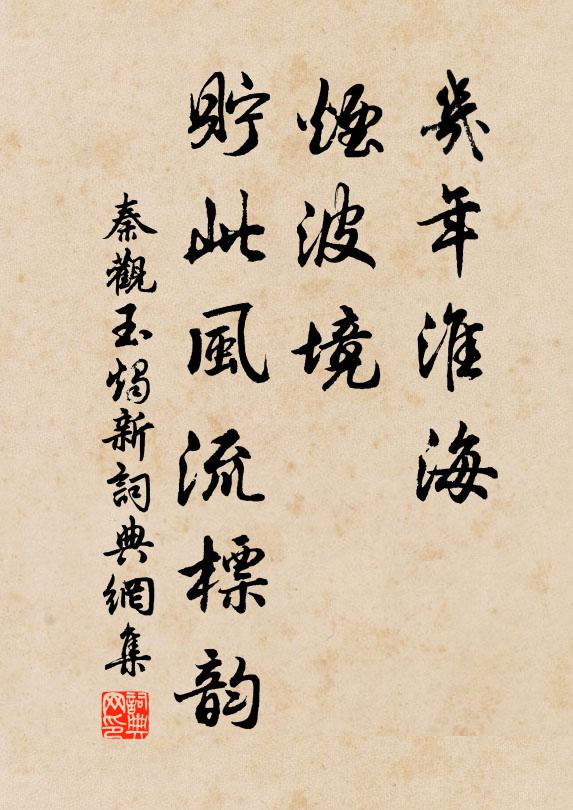 幾年淮海
煙波境
貯此風流標韵
秦觀玉燭新詞典網集
詞典网印